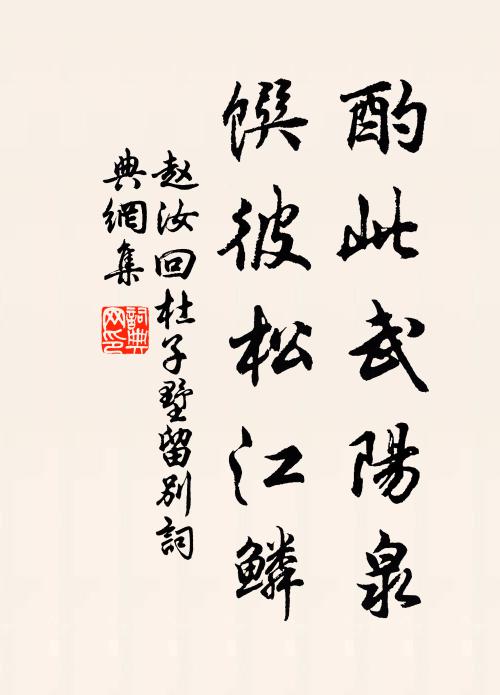 酌此武陽泉
饌彼松江鱗
赵汝回杜子墅留別詞
典網集
詞典
网印